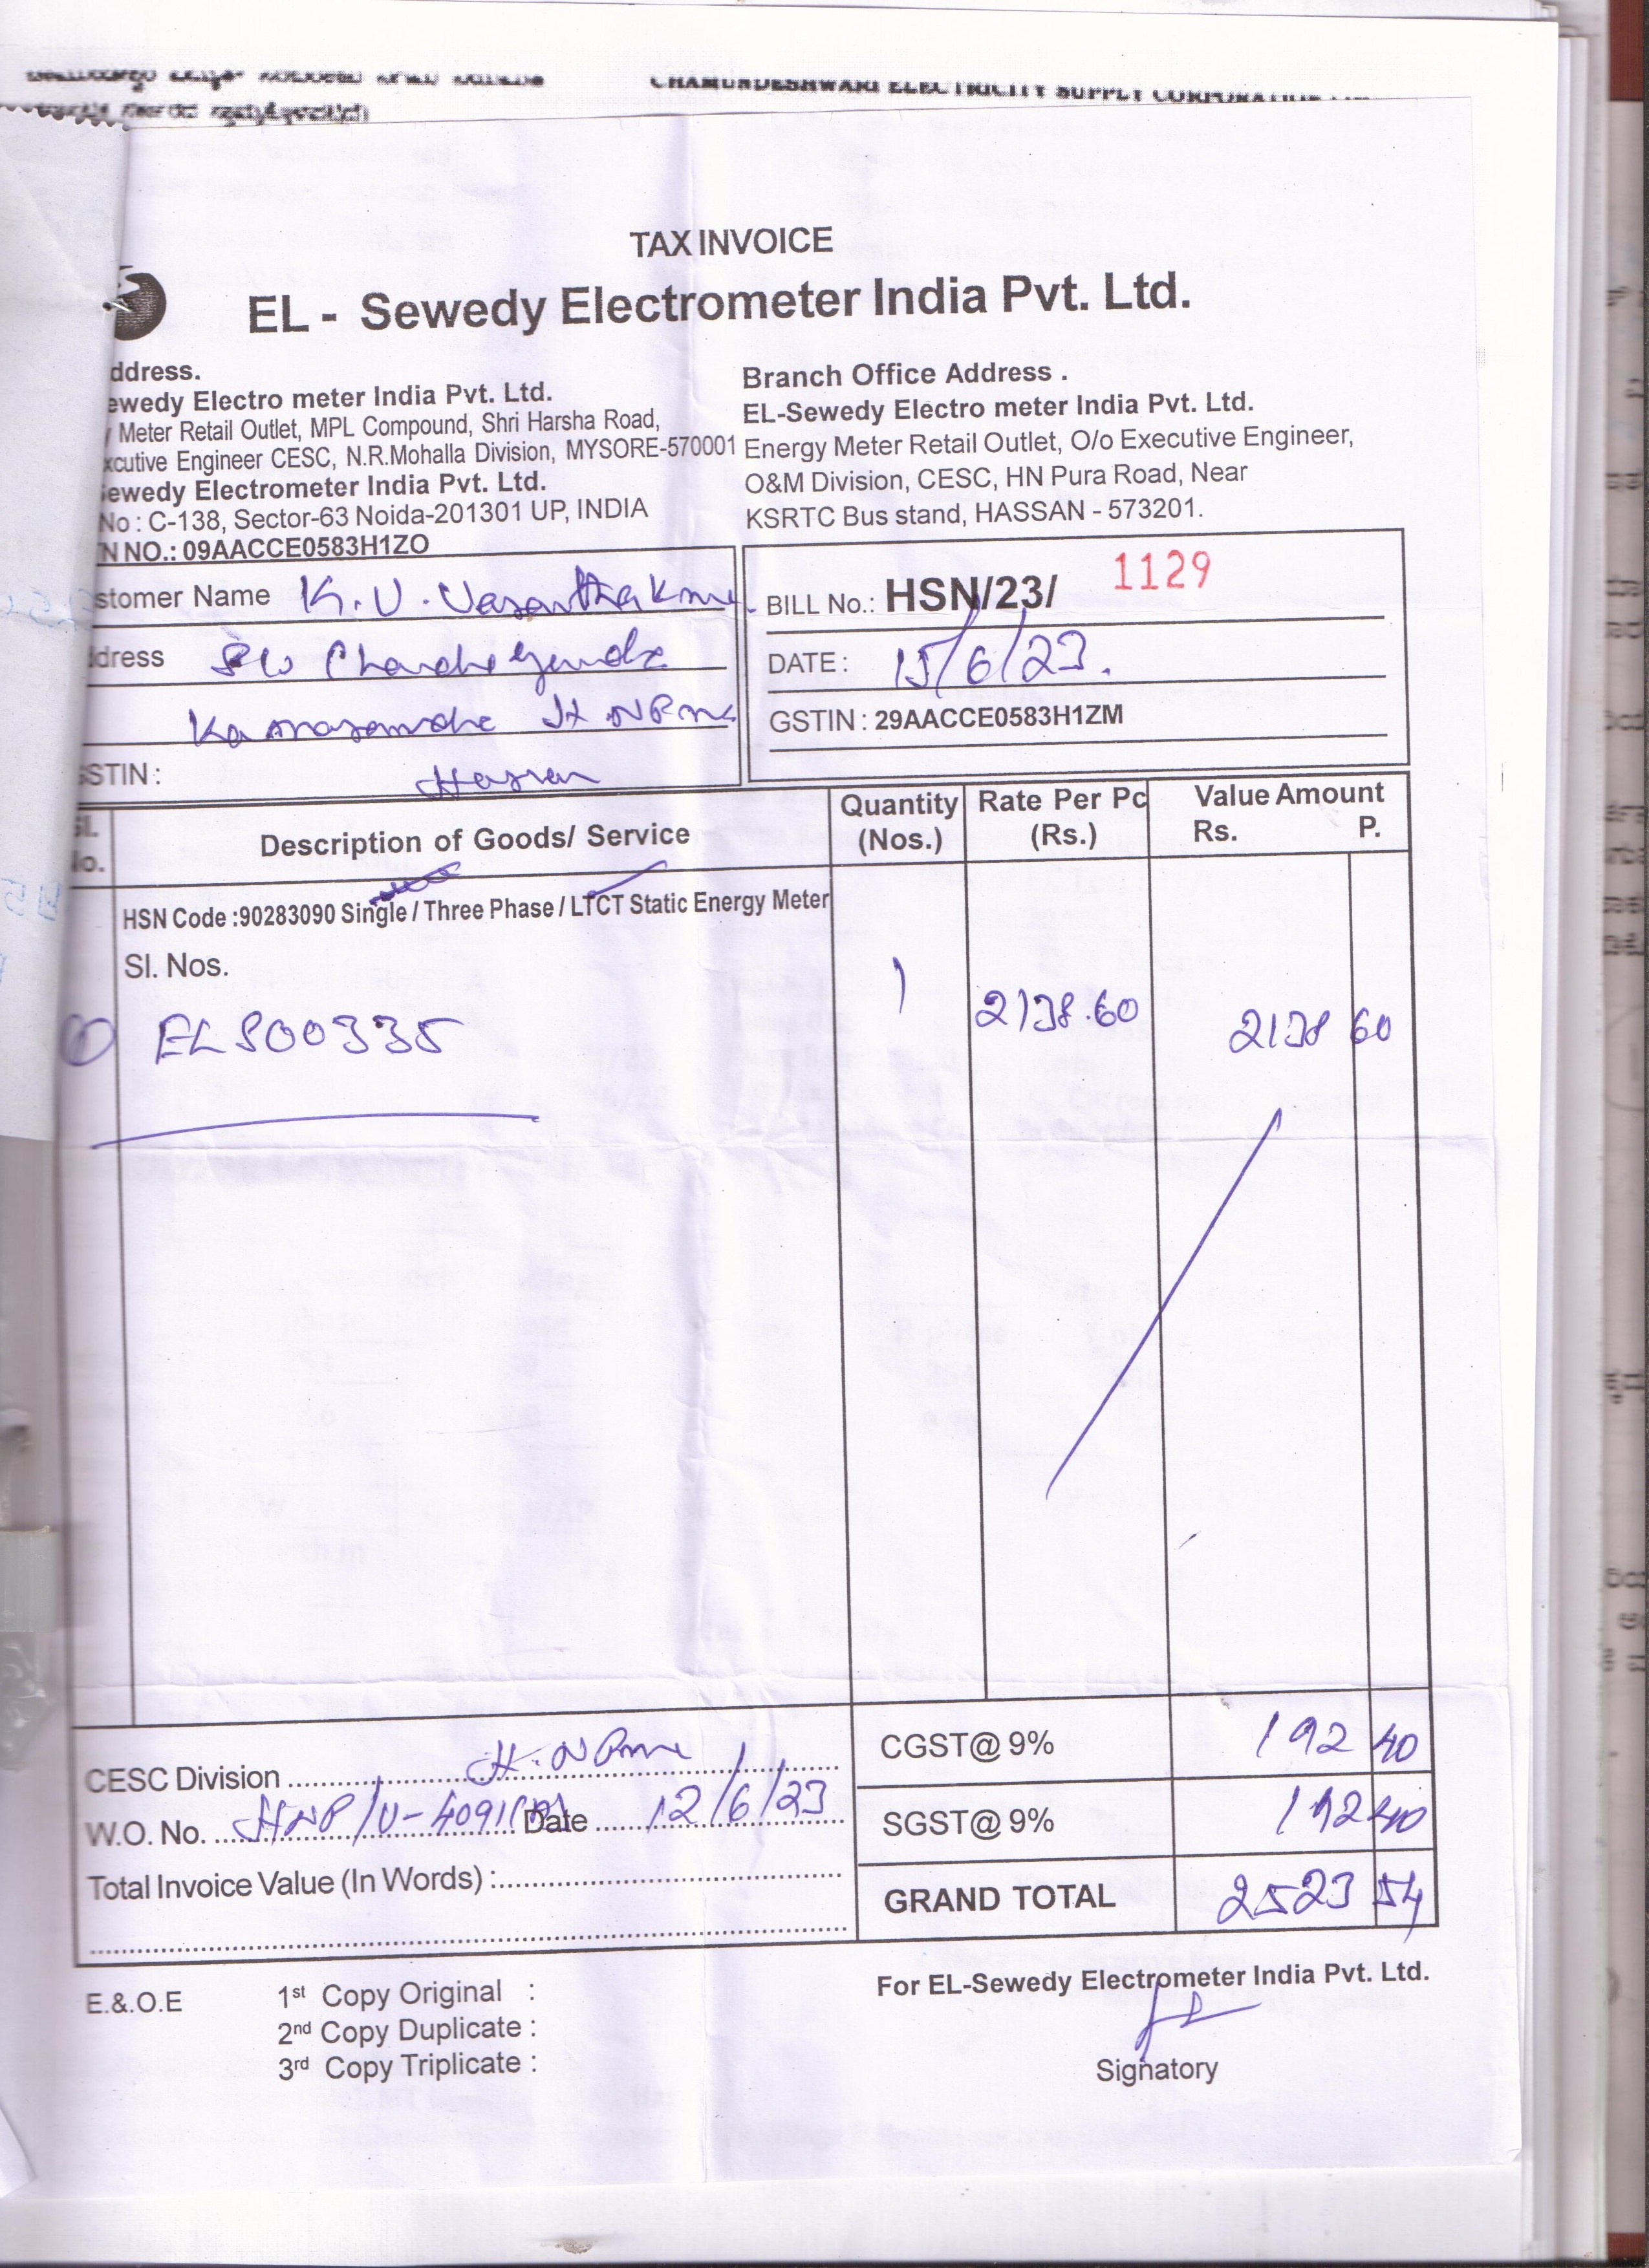 CHAMUNDESHWARI ELECTRICITY SUPPLY CORPORATION
TAX INVOICE
EL - Sewedy Electrometer India Pvt. Ltd.
ddress.
ewedy Electro meter India Pvt. Ltd.
Meter Retail Outlet, MPL Compound, Shri Harsha Road,
xcutive Engineer CESC, N.R.Mohalla Division, MYSORE-570001
ewedy Electrometer India Pvt. Ltd.
No : C-138, Sector-63 Noida-201301 UP, INDIA
N NO.: 09AACCE0583H1ZO
Branch Office Address .
EL-Sewedy Electro meter India Pvt. Ltd.
Energy Meter Retail Outlet, O/o Executive Engineer,
O&M Division, CESC, HN Pura Road, Near
KSRTC Bus stand, HASSAN - 573201.
stomer Name K.V.
ddress S/o
GSTIN : Hassan
BILL No.: HSN/23/ 1129
DATE : 15/6/23.
GSTIN : 29AACCE0583H1ZM
Sl. No. Description of Goods/ Service Quantity (Nos.) Rate Per Pc (Rs.) Value Amount Rs. P.
HSN Code :90283090 Single / Three Phase / LTCT Static Energy Meter
Sl. Nos.
① ELS00335 1 2138.60 2138 60
CESC Division
W.O. No. Date 12/6/23
Total Invoice Value (In Words) :
CGST@ 9% 192 40
SGST@ 9% 192 40
GRAND TOTAL 2523 54
E.&.O.E
1st Copy Original :
2nd Copy Duplicate :
3rd Copy Triplicate :
For EL-Sewedy Electrometer India Pvt. Ltd.
Signatory